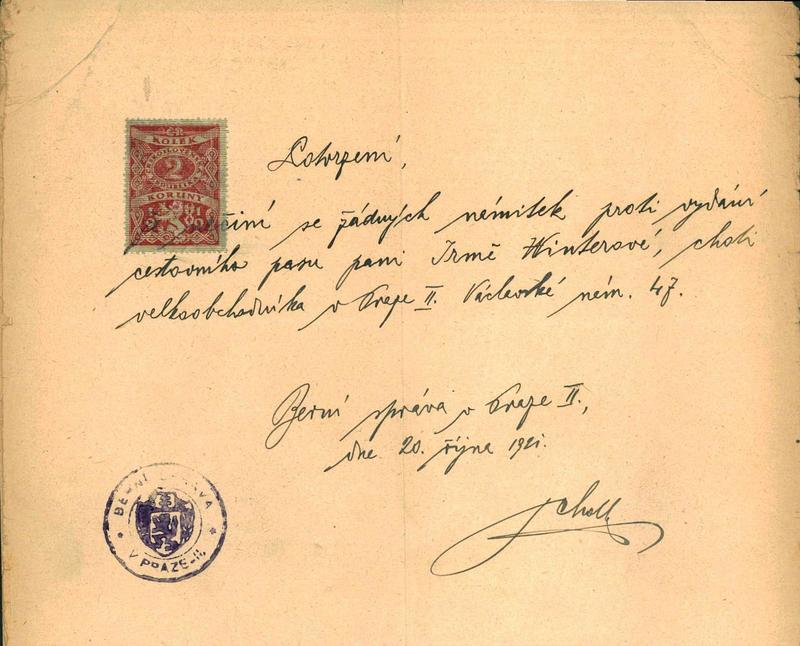 ČR
KOLEK
ČESKOSLOVENSKÁ
2
REPUBLIKA
KORUNY
Potvrzení,
činí se žádných námitek proti vydání
cestovního pasu paní Irmě Winterové, choti
velkoobchodníka v Praze II. Václavské nám. 47.
Berní správa v Praze II.,
dne 20. října 1921.
BERNÍ SPRÁVA
V PRAZE-II.